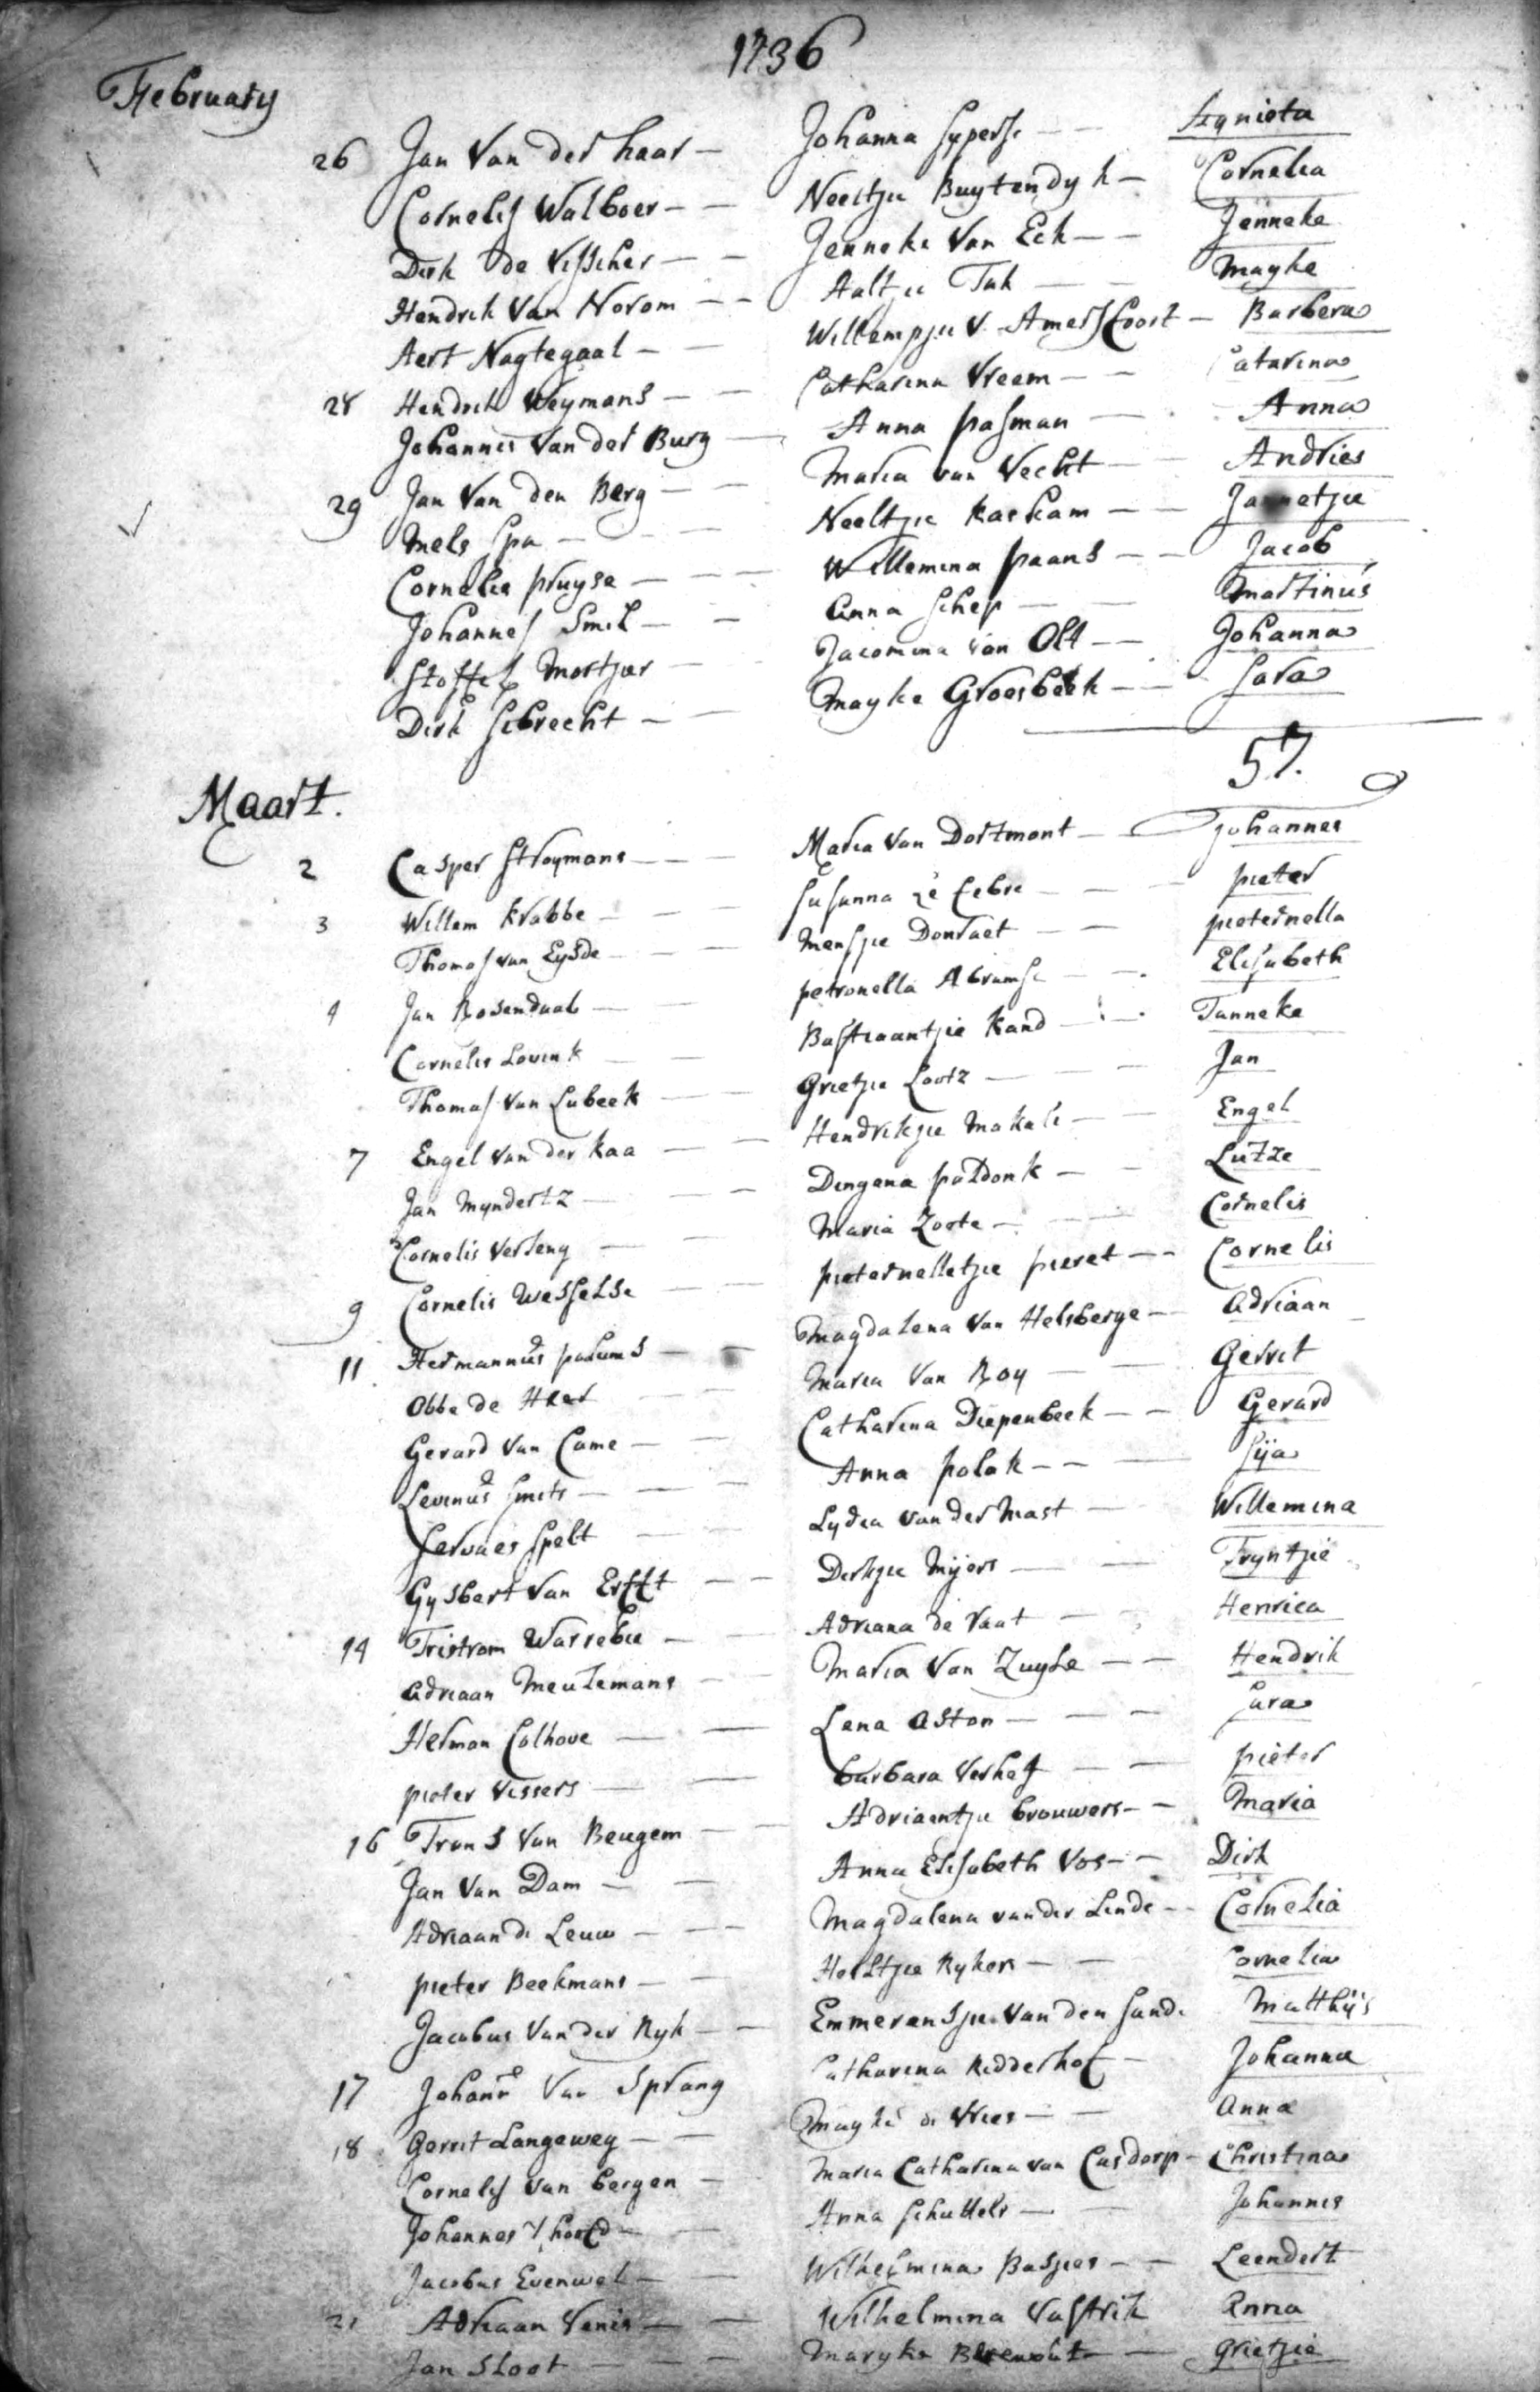 1736
February
26 Jan Van der haar — Johanna Sypersse — Agnieta
Cornelis Walboer — Neeltje Buytendyk — Cornelia
Dirk de Visscher — Jenneke Van Eck — Jenneke
Hendrik Van Norom — Aaltje Tak — Mayke
Aert Nagtegaal — Willempje V. Amersfoort — Barbera
28 Hendrik Weymans — Catharina Vreem — Catarina
Johannes Van der Burg — Anna pasman — Anna
29 Jan Van den Berg — Maria van Vecht — Andries
Mels Spa — Neeltje Kaskam — Jannetje
Cornelis pruyse — Willemina paans — Jacob
Johannes Smit — Anna Schep — Martinus
Stoffel Mortjer — Jacomina van Olst — Johanna
Dirk Sebrecht — Mayke Groesbeek — Sara
57.
Maart.
2 Casper Stroymans — Maria Van Dortmont — Johannes
3 Willem Krabbe — Susanna le Febre — pieter
Thomas van Eysde — Mensje Donraet — pieternella
4 Jan Rosendaal — petronella Abramse — Elisabeth
Cornelis Lovink — Bastiaantje Kand — Tanneke
Thomas Van Lubeek — Grietje Lootz — Jan
7 Engel Van der Kaa — Hendrikje Makali — Engel
Jan Myndertz — Dingena paddonk — Lutze
Cornelis Verseng — Maria Zoete — Cornelis
9 Cornelis Wesselse — pieternelletje pieret — Cornelis
11 Hermannus — Magdalena Van Helsberge — Adriaan
Obbe de Heer — Maria Van Roy — Gerrit
Gerard Van Came — Catharina Diepenbeek — Gerard
Levinus Smits — Anna polak — Sija
Servaes Spelt — Lydia van der Mast — Willemina
Gysbert Van Erfft — Dirkje Mijers — Tryntje
14 Tristram Warrebie — Adriana de Vaat — Henrica
Adriaan Meulemans — Maria Van Zuyle — Hendrik
Herman Colhove — Lena Aston — Sara
pieter Vissers — barbara Verhaf — pieter
16 Frans Van Beugem — Adriaentje brouwers — Maria
Jan Van Dam — Anna Elisabeth Vos — Dirk
Adriaan de Leuw — Magdalena van der Linde — Cornelia
pieter Beekmans — Hesltje Ryken — Cornelia
Jacobus Van der Ryk — Emmerensje Van den Sande — Matthijs
17 Johans Van Sprang — Catharina Ridderhof — Johanna
18 Gerrit Langeweg — Mayke de Vries — Anna
Cornelis Van bergen — Maria Catharina van Casdorp — Christina
Johannes 't hooft — Anna Schutters — Johannes
Jacobus Evenwel — Wilhelmina Basjees — Leendert
21 Adriaan Venis — Wilhelmina Vastrik — Anna
Jan Sloot — Maryke — Grietje